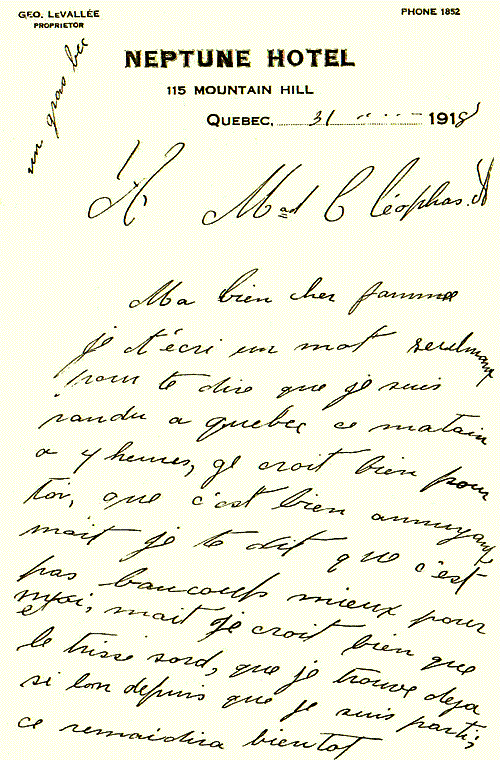 GEO. LEVALLÉE
PROPRIETOR
PHONE 1852
NEPTUNE HOTEL
115 MOUNTAIN HILL
QUEBEC, 31 1918
un gros bec
A Mad Cléophas
Ma bien cher famme
je t'écri un mot seulmant
pour te dire que je suis
randu a quebec ce matain
a 4 heures, ge croit bien pour
toi, que c'est bien annuyant
mait je te dit que c'est
pas baucoups mieux pour
moi, mait je croit bien que
et
le trisse sord, que je trouve deja
si lon depuis que je suis parti,
ce remaidira bientot